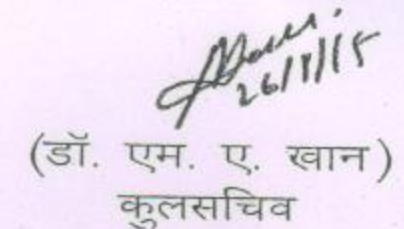 26/8/15
(डॉ. एम. ए. खान)
कुलसचिव